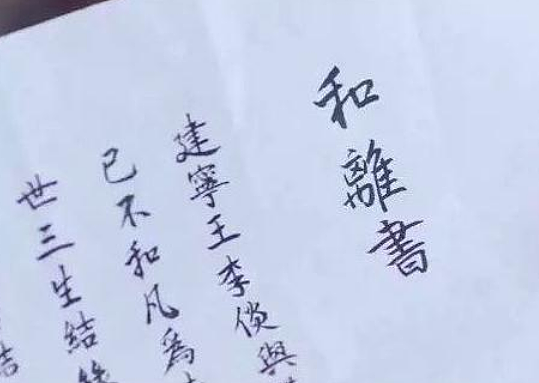 和離書
建寧王李倓與
已不和凡為
世三生結緣
結